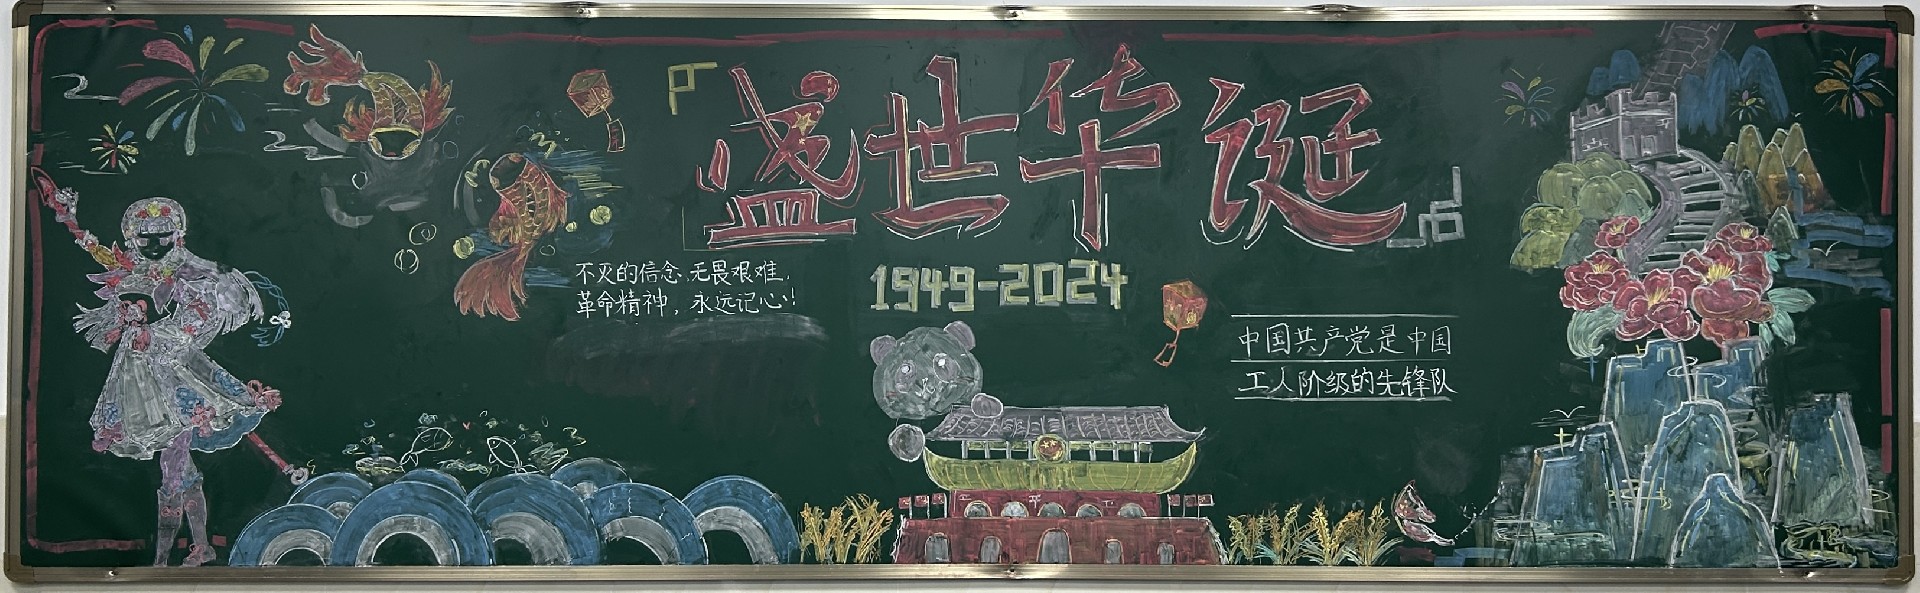 盛世华诞
1949-2024
不灭的信念,无畏艰难,
革命精神,永远记心!
中国共产党是中国
工人阶级的先锋队